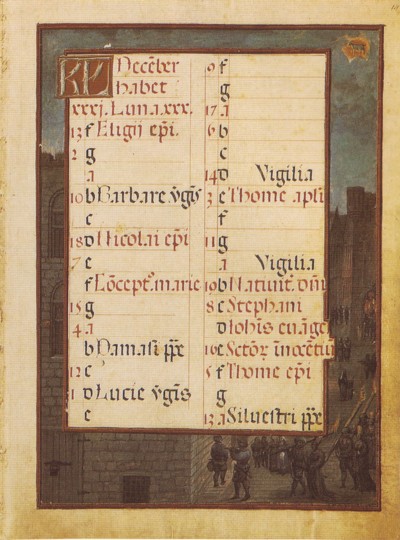 KL Decēber
habet
xxxj. Luna. xxx.
13 f Eligij ep̄i.
2 g
a
10 b Barbare v̄gīs
c
18 d Nicolai ep̄i
7 e
f Cōcept. marie
15 g
4 a
b Damasi p̄pe
12 c
1 d Lucie v̄gīs
e
9 f
g
17 a
6 b
c
14 d Vigilia
3 e Thome apl̄i
f
11 g
a Vigilia
19 b Natiuit. dn̄i
8 c Stephani
d Ioh̄is euāge
16 e Sctōꝝ inocētiū
5 f Thome ep̄i
g
13 a Siluestri p̄pe